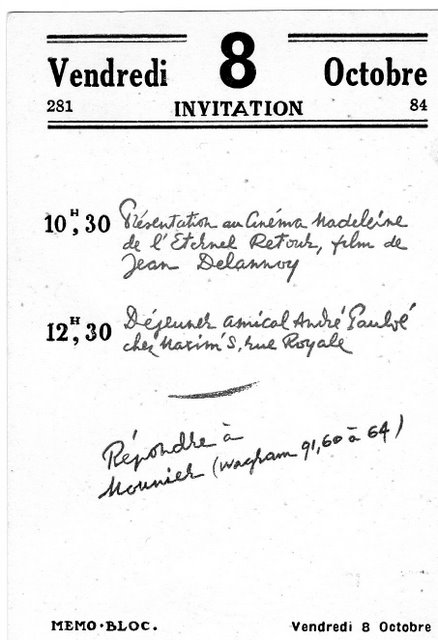 Vendredi 8 Octobre
281 INVITATION 84
10H,30 Présentation au Cinéma Madeleine
de l'Eternel Retour, film de
Jean Delannoy
12H,30 Déjeuner amical André Paulvé
chez Maxim's, rue Royale
Répondre à
Mounier (Wagram 91,60 à 64)
MEMO·BLOC. Vendredi 8 Octobre